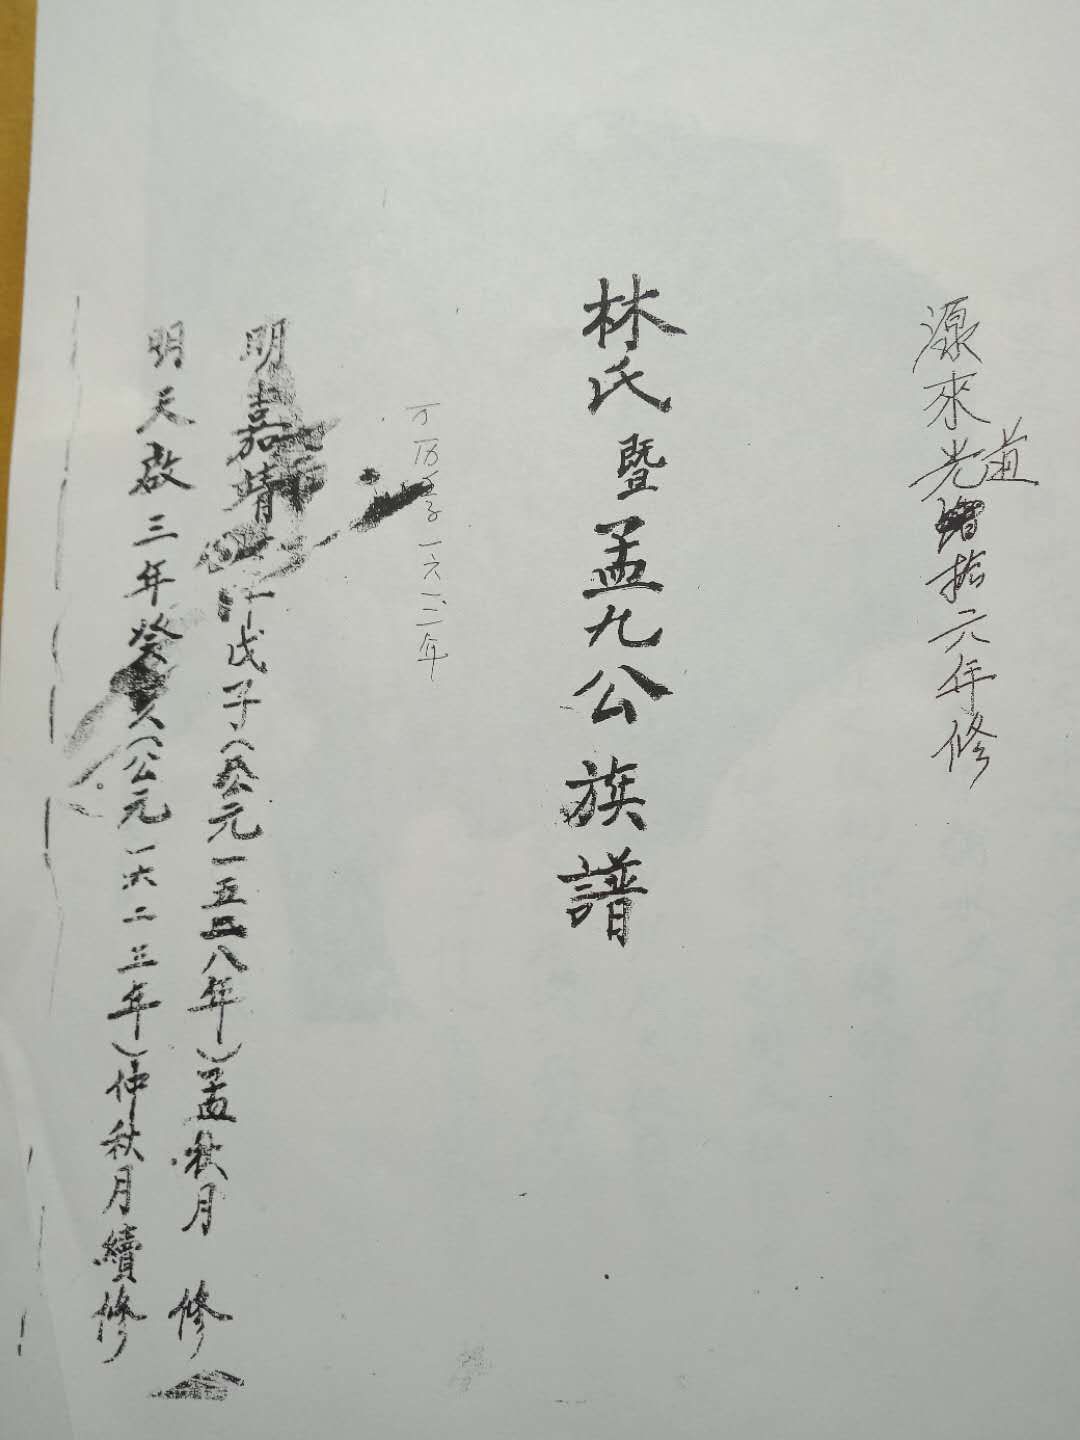 源來光道拾六年修
林氏暨孟九公族譜
万历壬子一六一二年
明嘉靖戊子(公元一五二八年)孟秋月 修
明天啟三年癸亥(公元一六二三年)仲秋月續修